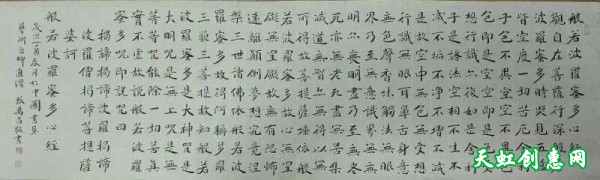 般若波羅蜜多心經
觀自在菩薩行深般若
波羅蜜多時照見五蘊
皆空度一切苦厄舍利
子色不異空空不異色
色即是空空即是色受
想行識亦復如是舍利
子是諸法空相不生不
滅不垢不淨不增不減
是故空中無色無受想
行識無眼耳鼻舌身意
無色聲香味觸法無眼
界乃至無意識界無無
明亦無無明盡乃至無老
死亦無老死盡無苦集
滅道無智亦無得以無
所得故菩提薩埵依般
若波羅蜜多故心無罣
礙無罣礙故無有恐怖
遠離顛倒夢想究竟涅
槃三世諸佛依般若波
羅蜜多故得阿耨多羅
三藐三菩提故知般若
波羅蜜多是大神咒是
大明咒是無上咒是無
等等咒能除一切苦真
實不虛故說般若波羅
蜜多咒即說咒曰
揭諦揭諦
波羅揭諦
波羅僧揭諦菩提薩
婆訶
般若波羅蜜多心經
天虹创惠网